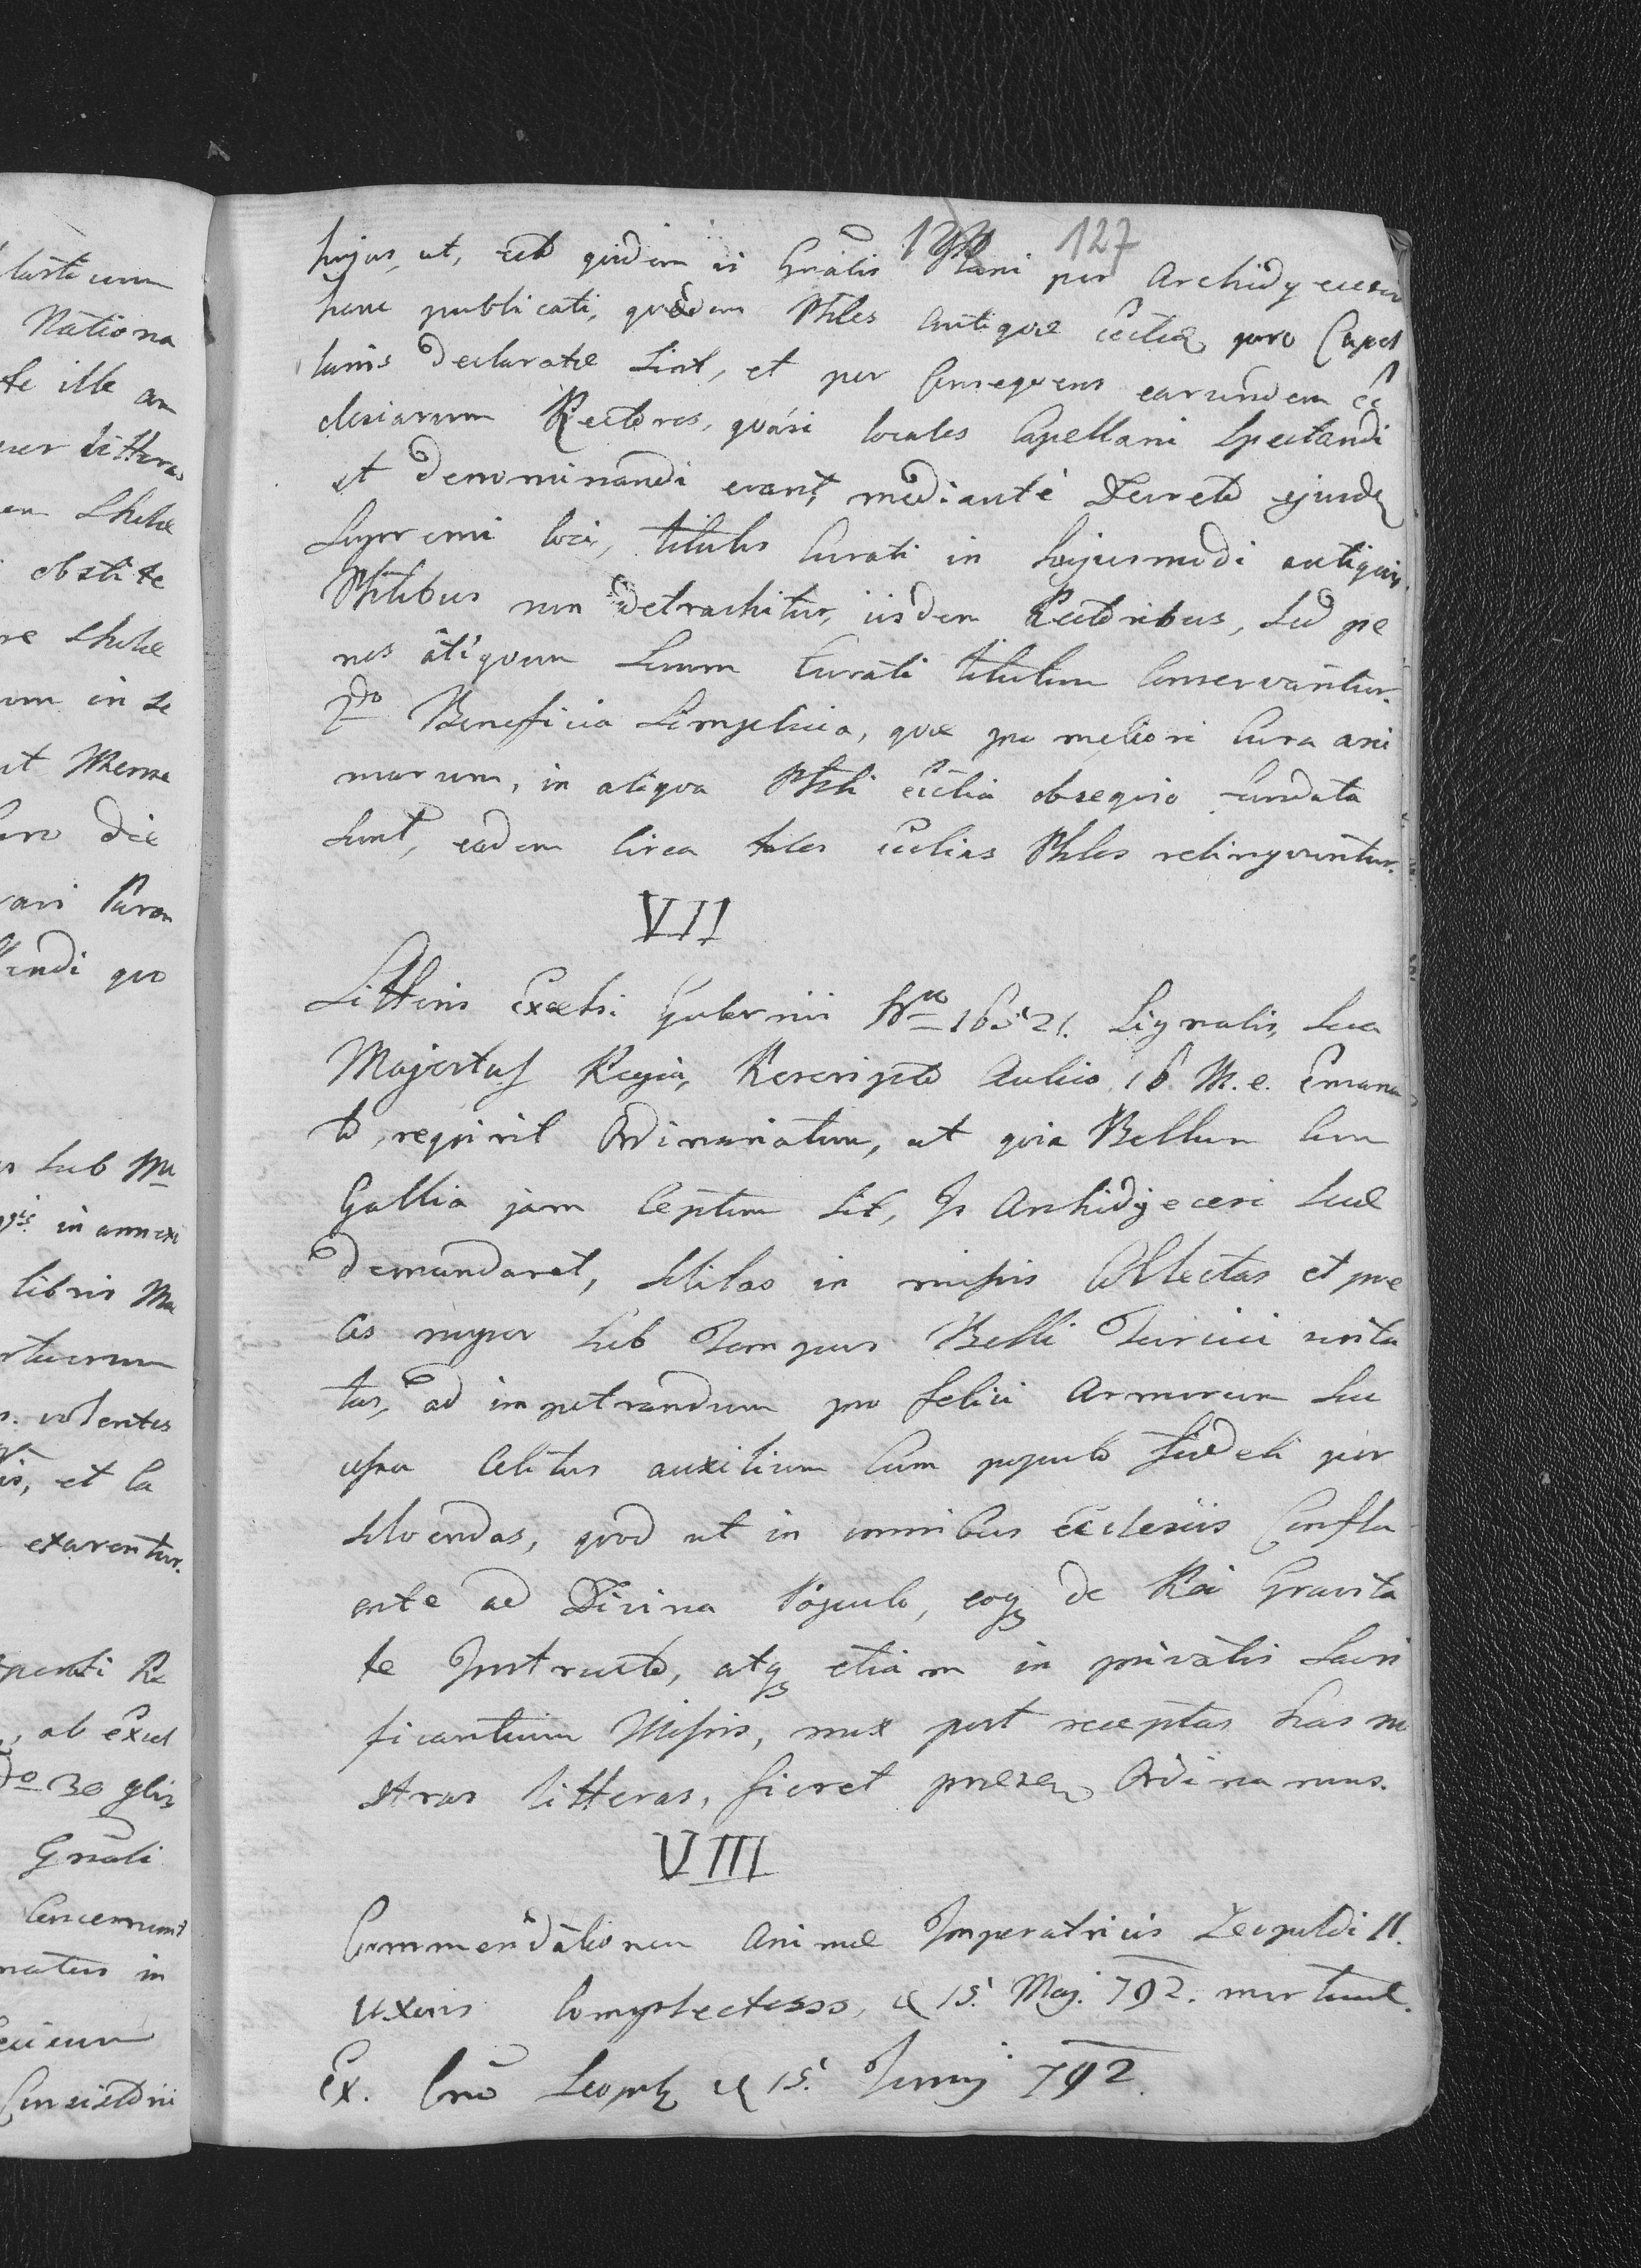 127
hujus, ut, etsi quidem is Gnalis Plani per Archidyecesim
hanc publicati, quaedam Phles antiquae Eccliae pro Capel
lanis declaratae sint, et per Consequens earundem Ec
clesiarum Rectores, quasi locales Capellani Spectandi
et denominandi erant, mediante Decreto ejusdem
Supremi loci, titulus Curati in hujusmodi antiquis
Phlibus non detrachitur, iisdem Rectoribus, sed pe
nes atiquum Suum Curati titulum Conservantur.
2do Beneficia Simplicia, quae pro meliori Cura ani
marum, in aliqua Phli Ecclia obsequio fundata
sunt, eadem Circa tales Ecclias Phles relinquuntur.
VII
Litteris Excelsi Gubernii Nro 16521. Signatis, Sua
Majestas Regia, Rescripto Aulico 16 M. e. Emana
to, requirit Ordinariatum, ut quia Bellum Cum
Gallia jam Ceptum sit, Is Archidyecesi suae
demandaret, Solitas in missis Collectas et pre
ces nuper sub Tempus Belli Turcici usita
tas, ad impetrandum pro felici Armorum suc
cessu Celitus auxilium Cum populo fideli per
solvendas, quod ut in omnibus Ecclesiis Conflu
ente ad Divina Populo, eoq de Rei Gravita
te Instructo, atq etiam in privatis Sacri
ficantium Missis, mox post receptas has no
stras litteras, fieret praesen Ordinamus.
VIII
Commendationem Animae Imperatricis Leopoldi II.
uxoris Complectesss, d 15. Maj. 792. mortuae.
Ex. Cno Leopol d 15. Junij 792.
lasticum
Nationa
te ille an
litteras
obstite
um in se
libris Ma
volentes
et la
exarentur.
ab Excel
do 30 Xbris
Gnali
Concernunt
natus in
Consistorii